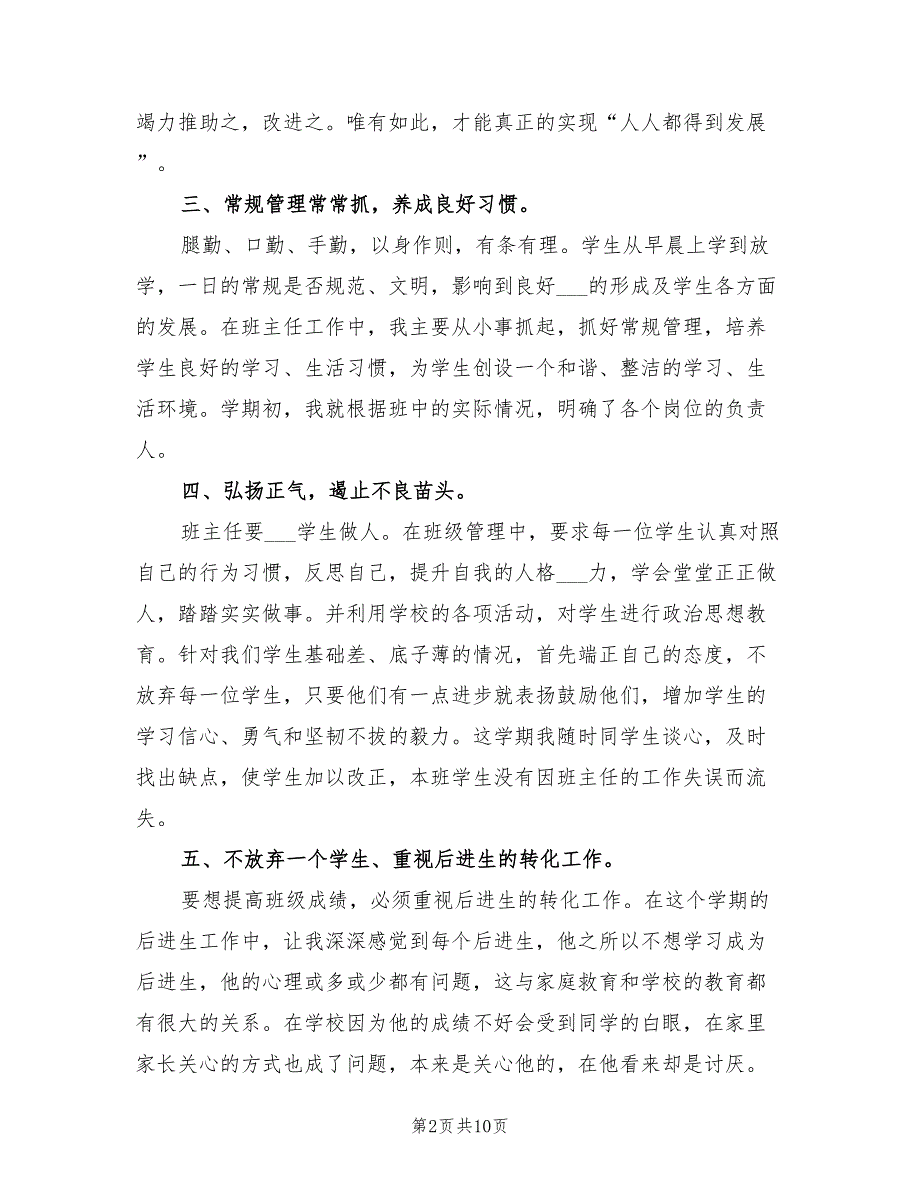 竭力推助之，改进之。唯有如此，才能真正的实现“人人都得到发展
”。
三、常规管理常常抓，养成良好习惯。
腿勤、口勤、手勤，以身作则，有条有理。学生从早晨上学到放
学，一日的常规是否规范、文明，影响到良好___的形成及学生各方面
的发展。在班主任工作中，我主要从小事抓起，抓好常规管理，培养
学生良好的学习、生活习惯，为学生创设一个和谐、整洁的学习、生
活环境。学期初，我就根据班中的实际情况，明确了各个岗位的负责
人。
四、弘扬正气，遏止不良苗头。
班主任要___学生做人。在班级管理中，要求每一位学生认真对照
自己的行为习惯，反思自己，提升自我的人格___力，学会堂堂正正做
人，踏踏实实做事。并利用学校的各项活动，对学生进行政治思想教
育。针对我们学生基础差、底子薄的情况，首先端正自己的态度，不
放弃每一位学生，只要他们有一点进步就表扬鼓励他们，增加学生的
学习信心、勇气和坚韧不拔的毅力。这学期我随时同学生谈心，及时
找出缺点，使学生加以改正，本班学生没有因班主任的工作失误而流
失。
五、不放弃一个学生、重视后进生的转化工作。
要想提高班级成绩，必须重视后进生的转化工作。在这个学期的
后进生工作中，让我深深感觉到每个后进生，他之所以不想学习成为
后进生，他的心理或多或少都有问题，这与家庭救育和学校的教育都
有很大的关系。在学校因为他的成绩不好会受到同学的白眼，在家里
家长关心的方式也成了问题，本来是关心他的，在他看来却是讨厌。
第2页共10页